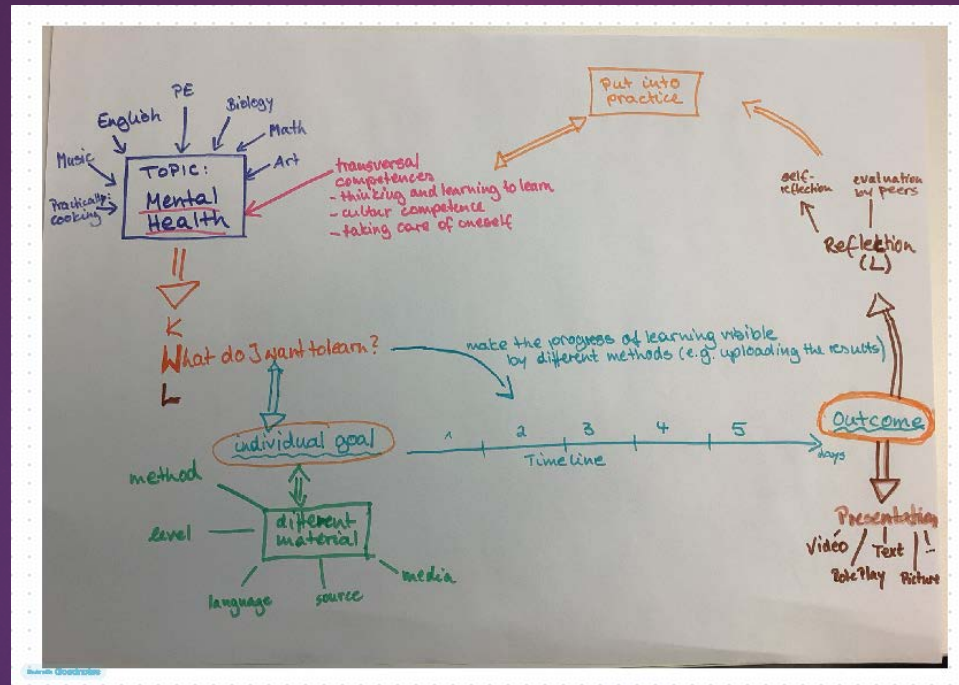 PE
English
Biology
Math
Music
Art
Practically:
cooking
TOPIC:
Mental
Health
transversal
competences
- thinking and learning to learn
- cultur competence
- taking care of oneself
put into
practice
self-
reflection
evaluation
by peers
Reflection
(L)
K
What do I want to learn?
L
make the progress of learning visible
by different methods (e.g. uploading the results)
individual goal
1 2 3 4 5
Timeline
days
Outcome
method
level
different
material
language
source
media
Presentation
Video
Text
Role Play
Picture
...
Made with Goodnotes